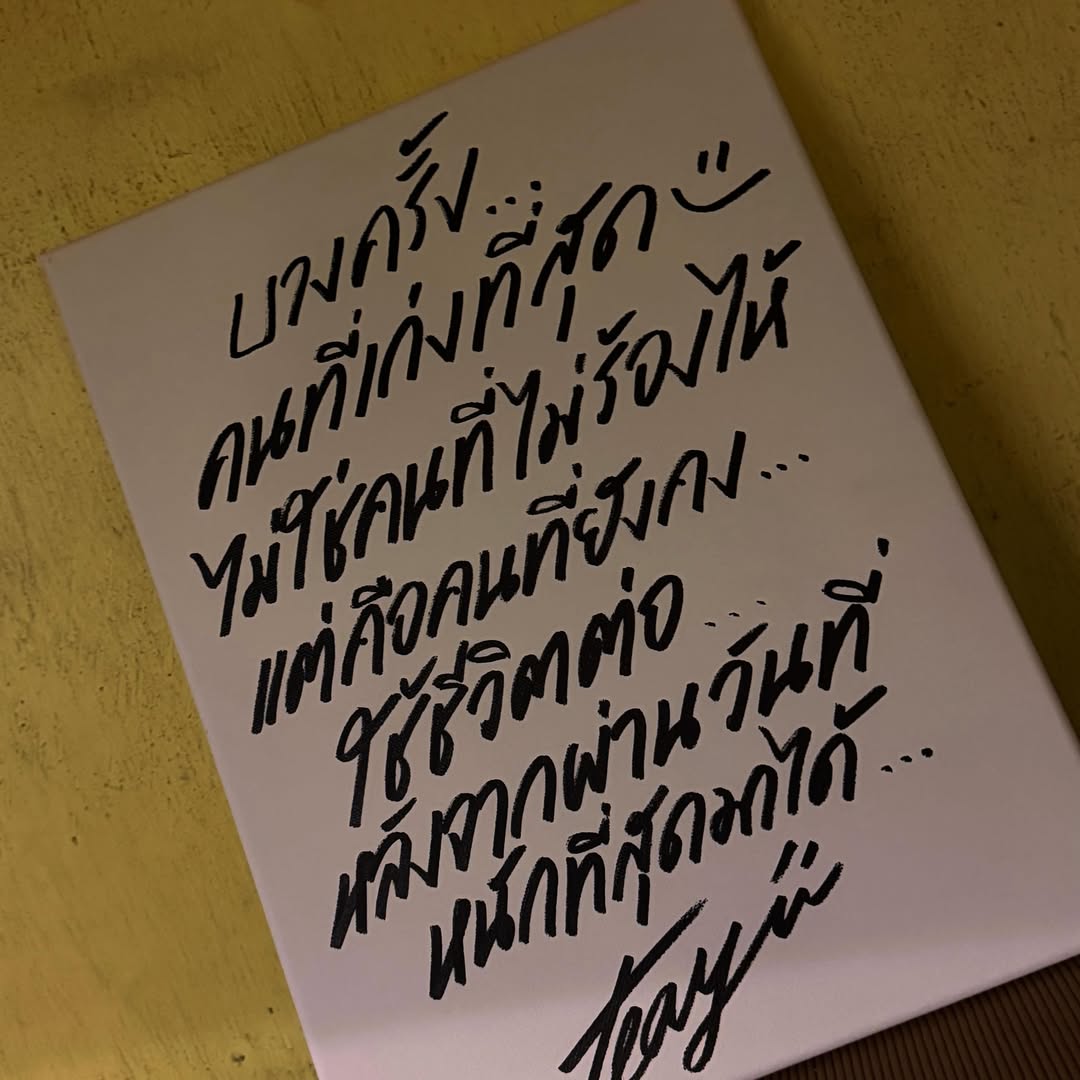 บางครั้ง...
คนที่เก่งที่สุด
ไม่ใช่คนที่ไม่ร้องไห้
แต่คือคนที่ยังคง...
ใช้ชีวิตต่อ...
หลังจากผ่านวันที่
หนักที่สุดมาได้...